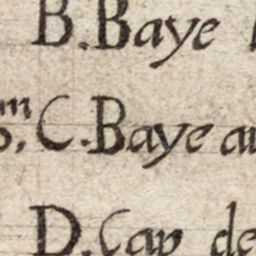 B. Baye
C. Baye au
D. Cap de